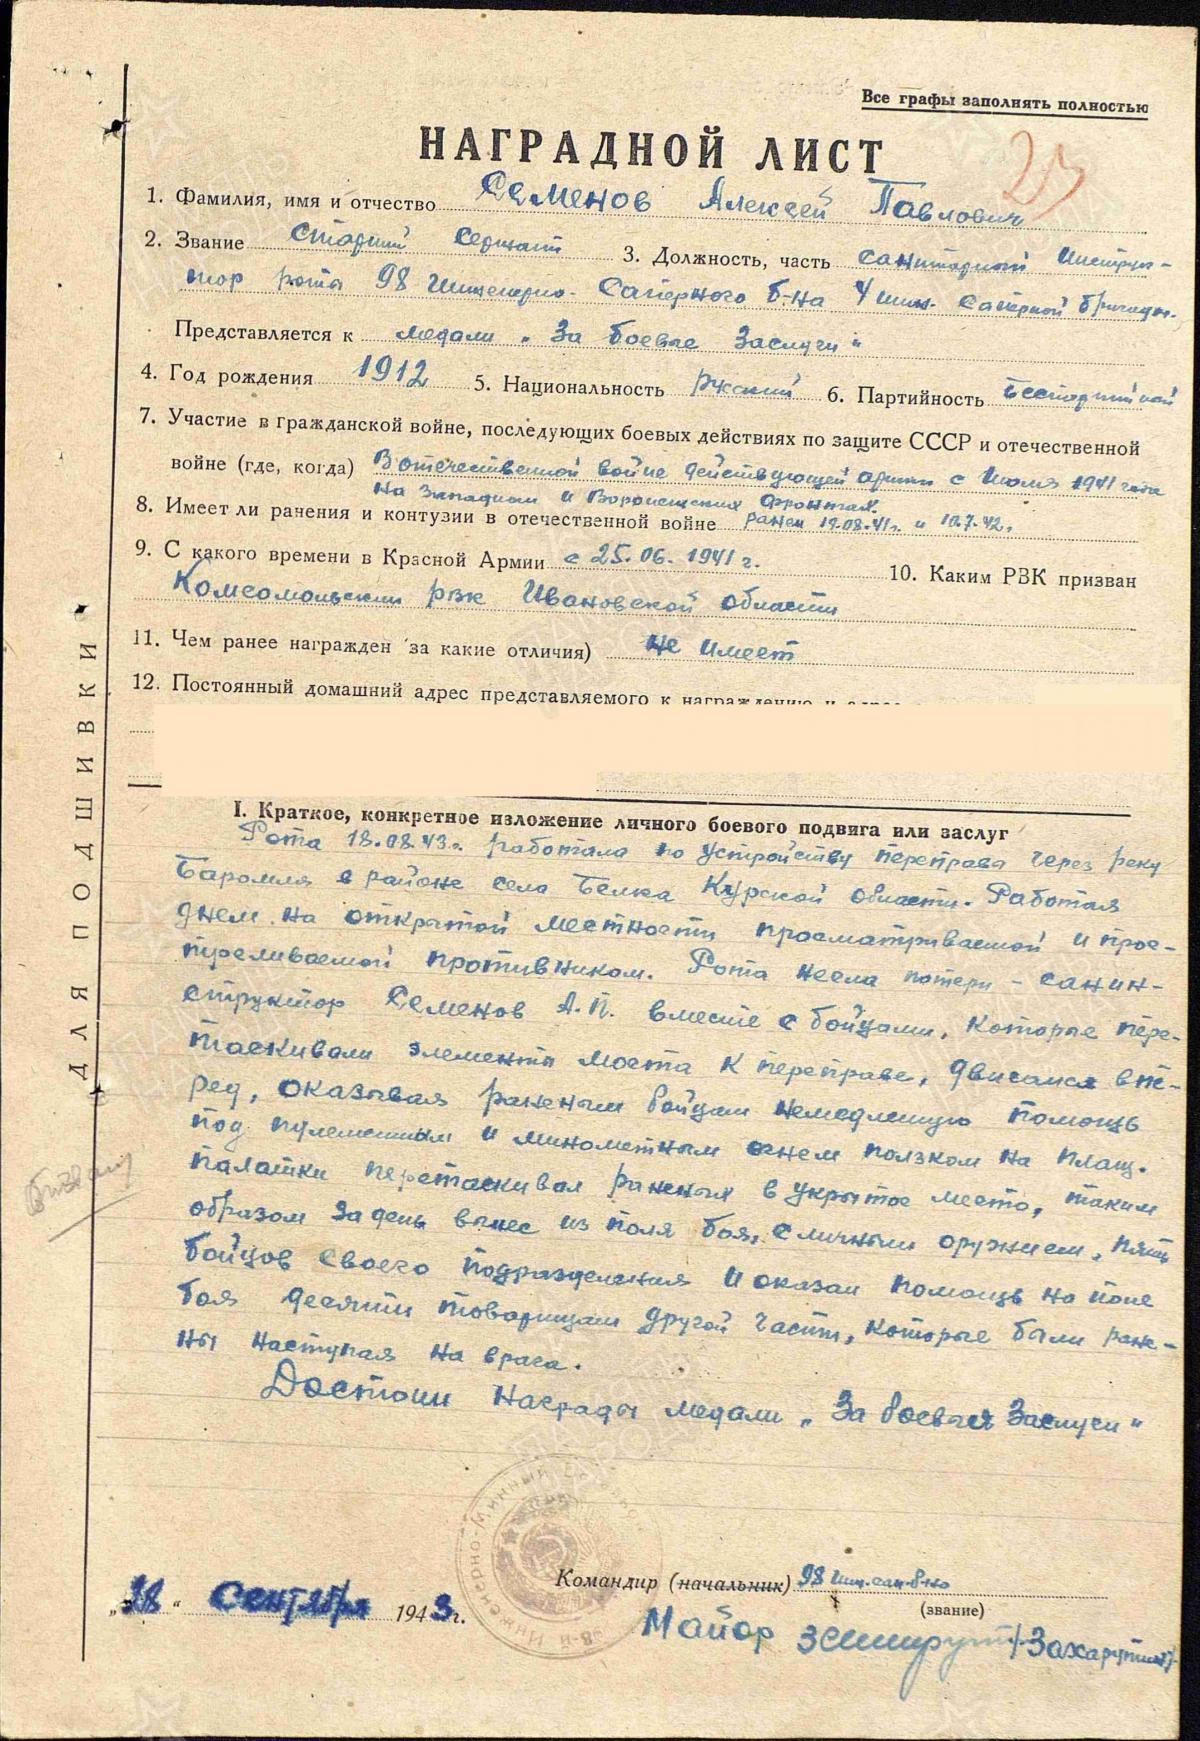 Все графы заполнять полностью
НАГРАДНОЙ ЛИСТ
23
1. Фамилия, имя и отчество Семенов Алексей Павлович
2. Звание Старший сержант 3. Должность, часть санитарный инструк-
тор роты 98 Инженерно-Саперного б-на 4 инж. саперной бригады.
Представляется к медали „За боевые Заслуги"
4. Год рождения 1912 5. Национальность русский 6. Партийность беспартийный
7. Участие в гражданской войне, последующих боевых действиях по защите СССР и отечественной
войне (где, когда) В отечественной войне действующей армии с Июля 1941 года
на Западным и Воронежских фронтах.
8. Имеет ли ранения и контузии в отечественной войне ранен 19.08.41г. и 10.7.42г.
9. С какого времени в Красной Армии с 25.06.1941 г. 10. Каким РВК призван
Комсомольским рвк Ивановской области
11. Чем ранее награжден за какие отличия) не имеет
12. Постоянный домашний адрес представляемого к награждению и
I. Краткое, конкретное изложение личного боевого подвига или заслуг
Рота 18.08.43г. работала по устройству переправа через реку
Баромля в районе села Белка Курской области. Работая
днем на открытой местности просматриваемой и прос-
треливаемой противником. Рота несла потери – санин-
структор Семенов А.П. вместе с бойцами, которые пере-
таскивали элементы моста к переправе, двигался впе-
ред, оказывая раненым бойцам немедленную помощь
под пулеметным и минометным огнем ползком на плащ.
палатки перетаскивал раненых в укрытое место, таким
образом за день вынес из поля боя, с личным оружием, пять
бойцов своего подразделения и оказал помощь на поле
боя десяти товарищам другой части, которые были ране-
ны наступая на врага.
Достоин награды медали „За боевые Заслуги"
Командир (начальник) 98 инж-сап-б-на
(звание)
„18" Сентября 1943 г.
Майор /Захарутин/
ДЛЯ ПОДШИВКИ
98-й Инженерно-Минный Батальон